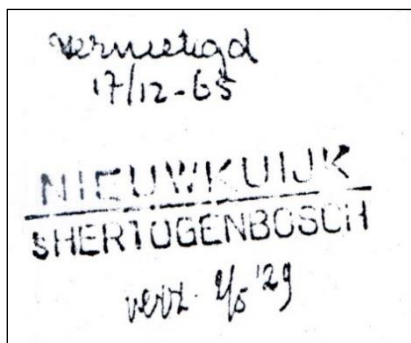 vernietigd
17/12-65
NIEUWKUIJK
SHERTOGENBOSCH
verz. 2/5 '29